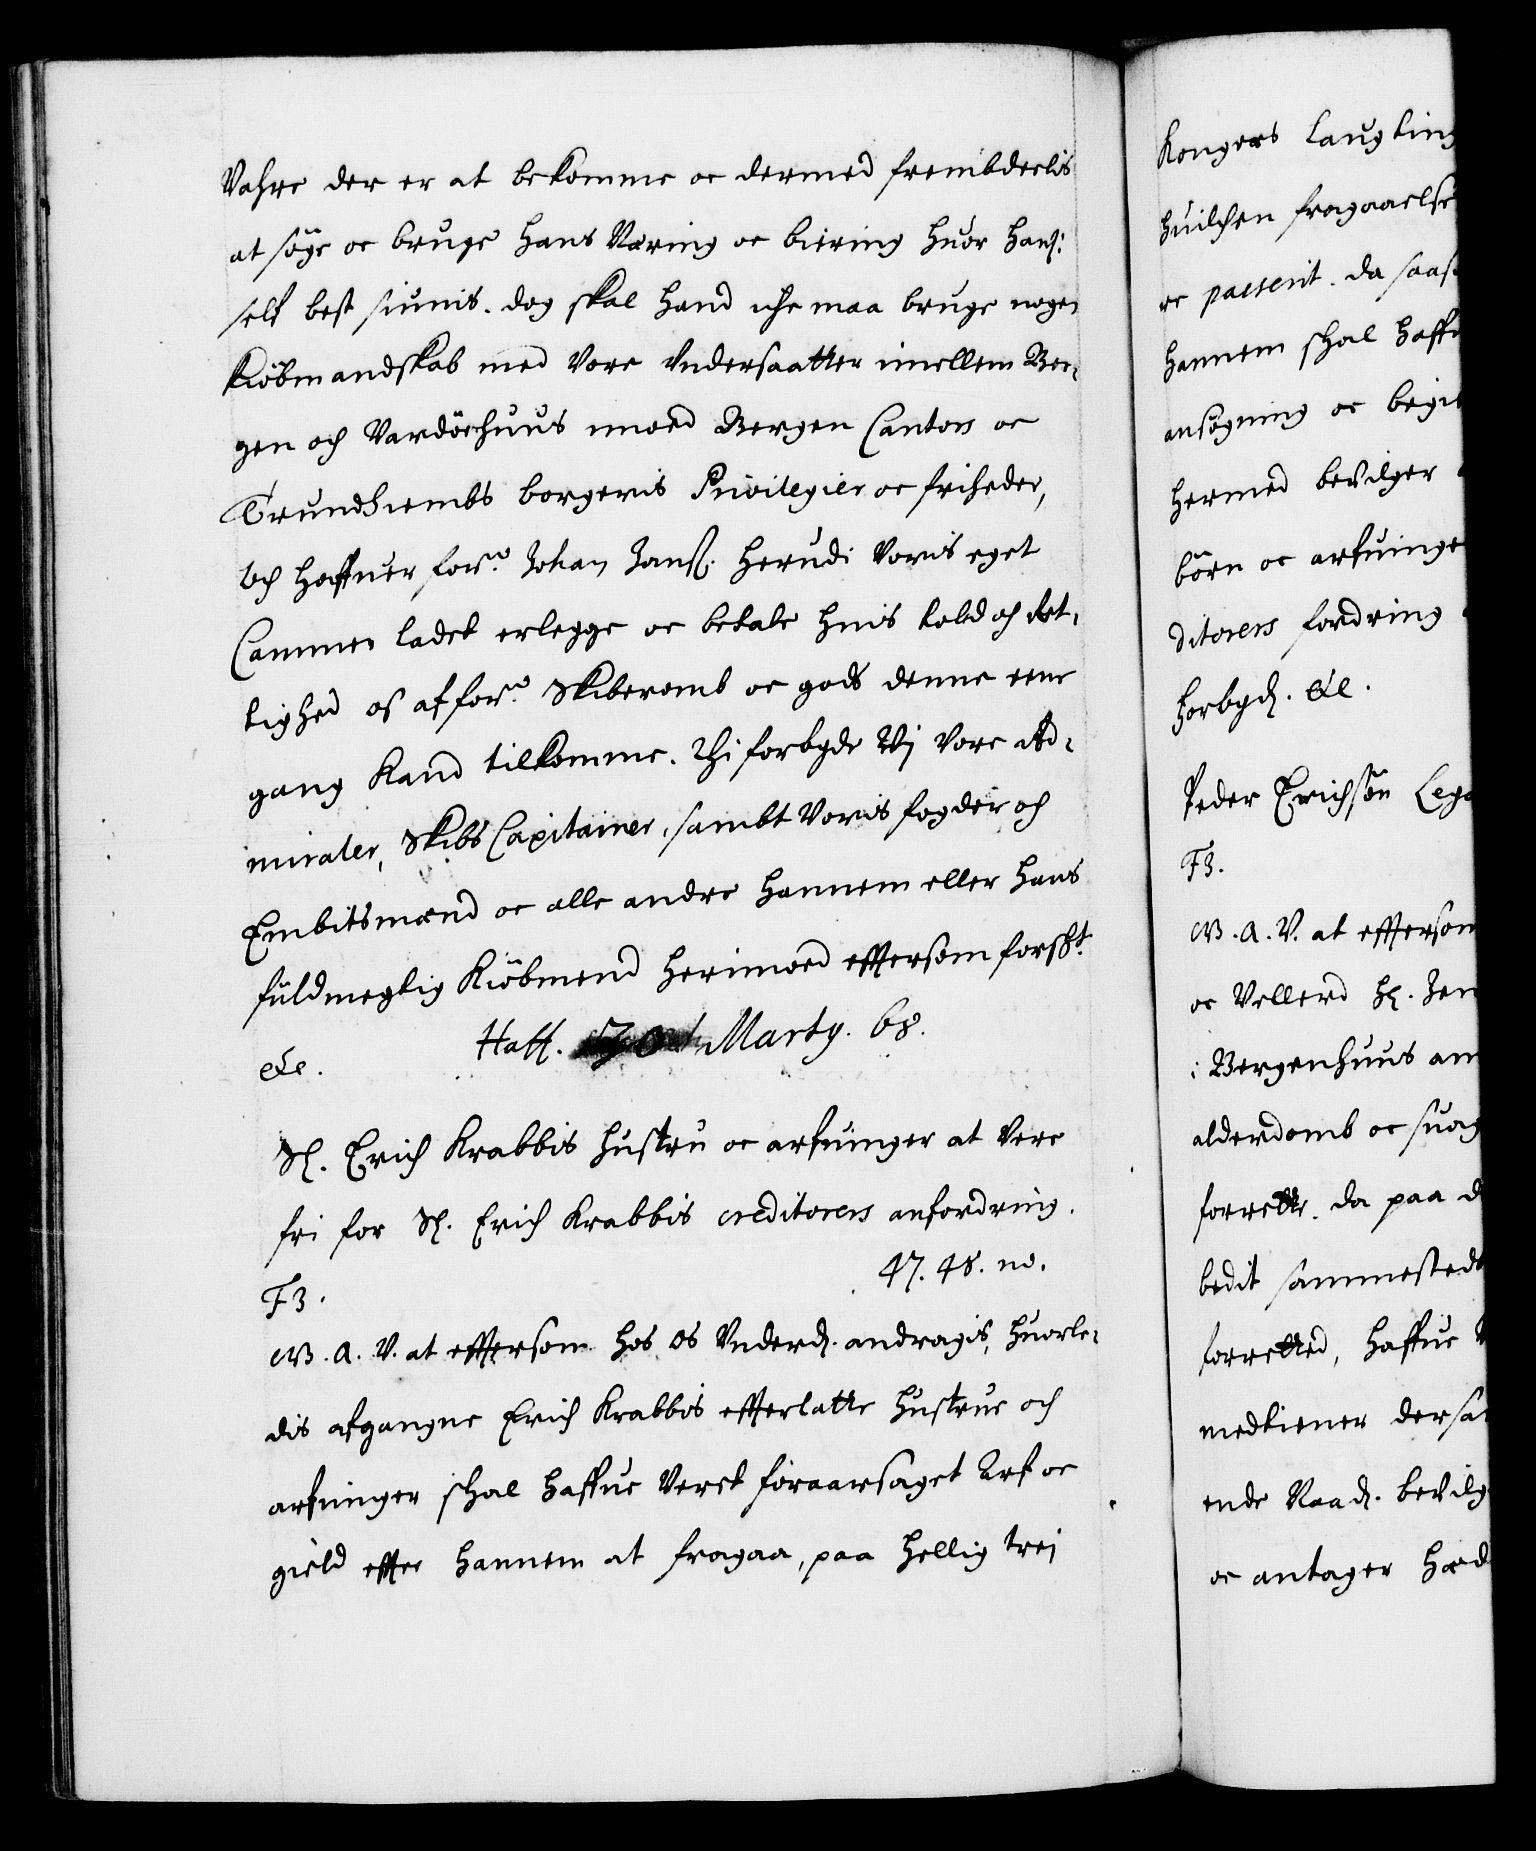 Vahre der er at bekomme oc dermed frembdeelis
at søge oc bruge hans Næring oc biering huor hans:
self best siunis. dog skal hand iche maa bruge nogen
Kiøbmandskab med Vore Vndersaatter imellem Ber-
gen och Vardøehuus imoed Bergen Cantors oc
Trundhiembs borgeris Privilegier oc friheder,
Och haffuer forne Johan Janss. herudi Voris eget
Cammer ladet erlegge oc betale huis told och Ret-
tighed os af forne Skiberomb oc gods denne eene
gang Kand tilkomme. Thi forbyde Wj Vore Ad-
miraler, Skibs Capitainer, sambt Voris fogder och
Embitsmænd oc alle andre hannem eller hans
fuldmegtig Kiøbmend herimoed effersom forscht.
Haff. Marty. 68.
etc.
Sl. Erich Krabbis hustru oc arfuinger at Vere
fri for Sl. Erich Krabbis creditorers anfordring.
47. 48. no.
F3.
W. A. V. at effersom hos os Vnderd. andragis, huorle-
dis afgangne Erich Krabbis efferlatte hustrue och
arfuinger skal haffue Veret foraarsaget Arf oc
gield effter hannem at fragaa, paa hellig trej
Kongers laugting
huilchen fragaaelse
er passerit. da saasom
hannem skal haffu
ansøgning oc begie
hermed bevilger
børn oc arfuinge
ditorers fordring
forbyd. etc.
Peder Erichsøn Lega
F3.
W. A. V. at effersom
oc Vellerd Hr. Jen
i Bergenhuus am
alderdomb oc suag
forrette. da paa d
bedit sammestedt
forretted, haffue
medtiener dersa
ende Naad. bevilg
oc antager hæd